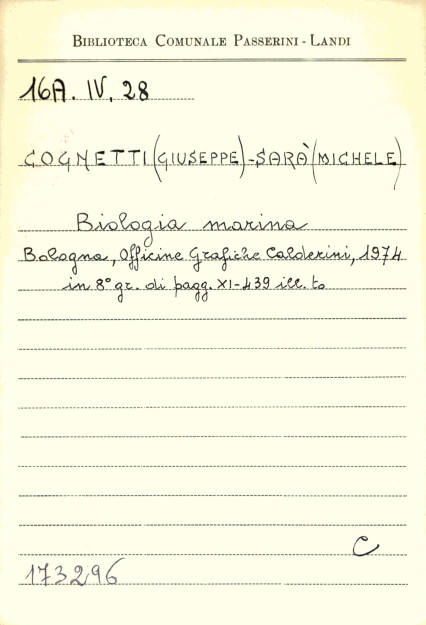 BIBLIOTECA COMUNALE PASSERINI - LANDI
16A. IV. 28
COGNETTI (GIUSEPPE) - SARÀ (MICHELE)
Biologia marina
Bologna, Officine Grafiche Calderini, 1974
in 8° gr. di pagg. XI-439 ill. to
C
173296